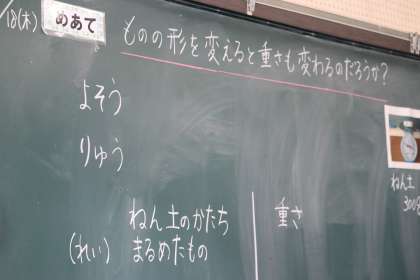 18(木)
めあて
ものの形を変えると重さも変わるのだろうか?
よそう
りゅう
ねん土のかたち
重さ
(れい) まるめたもの
ねん土